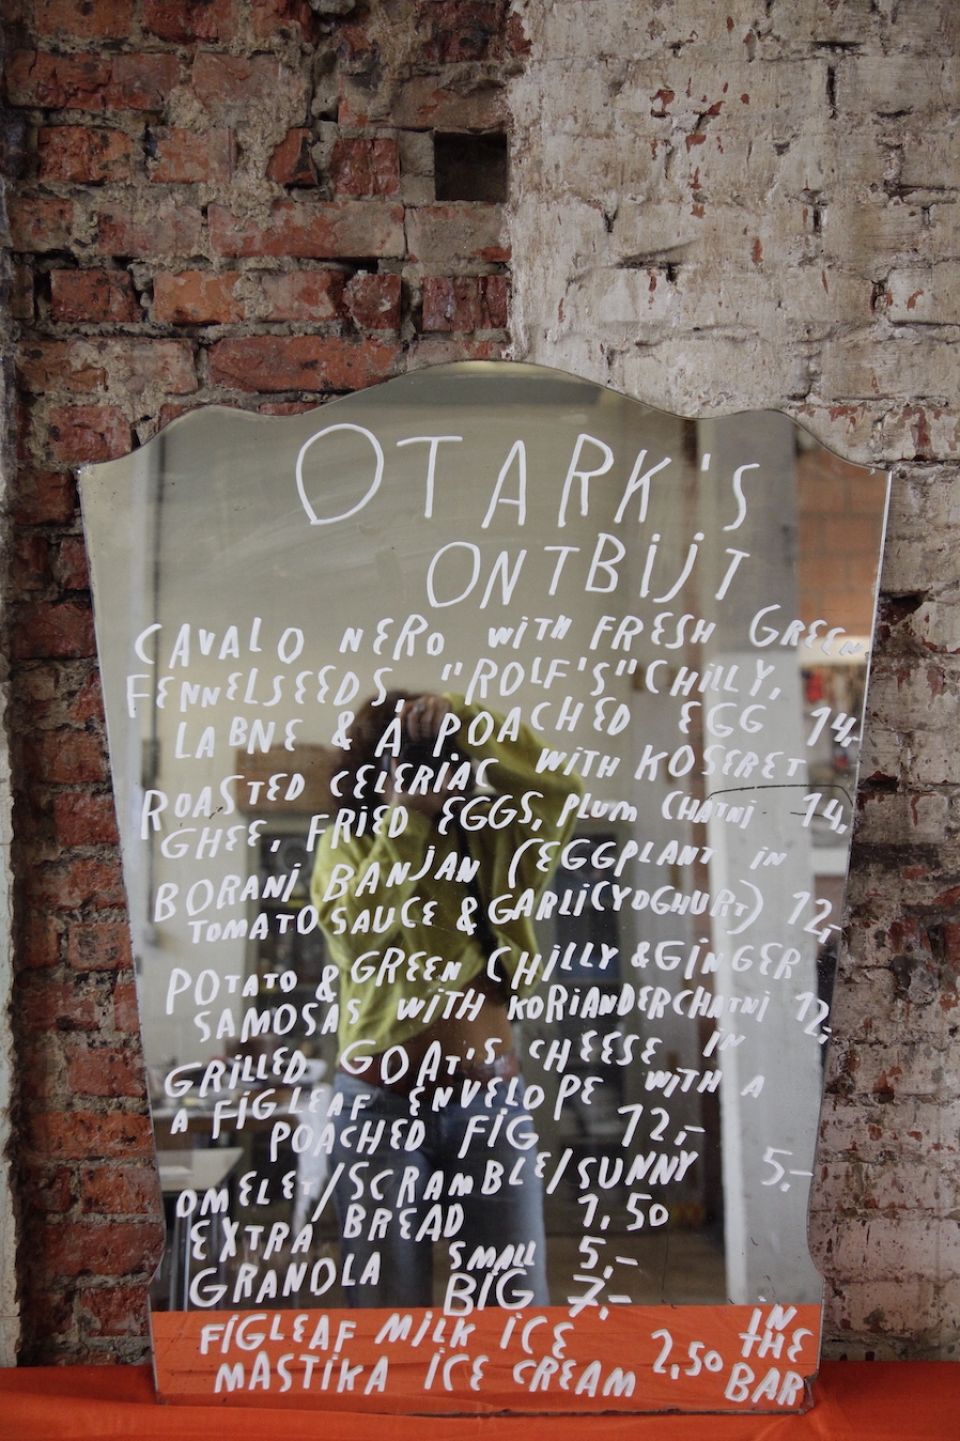 OTARK'S
ONTBIJT
CAVALO NERO WITH FRESH GREEN
FENNELSEEDS, "ROLF'S" CHILLY,
LABNE & A POACHED EGG 14,-
ROASTED CELERIAC WITH KOSERET
GHEE, FRIED EGGS, PLUM CHATNI 14,-
BORANI BANJAN (EGGPLANT IN
TOMATO SAUCE & GARLICYOGHURT) 12,-
POTATO & GREEN CHILLY & GINGER
SAMOSAS WITH KORIANDERCHATNI 12,-
GRILLED GOAT'S CHEESE IN
A FIGLEAF ENVELOPE WITH A
POACHED FIG 12,-
OMELET/SCRAMBLE/SUNNY 5,-
EXTRA BREAD 1,50
GRANOLA SMALL 5,-
BIG 7,-
FIGLEAF MILK ICE
MASTIKA ICE CREAM 2,50
IN
THE
BAR